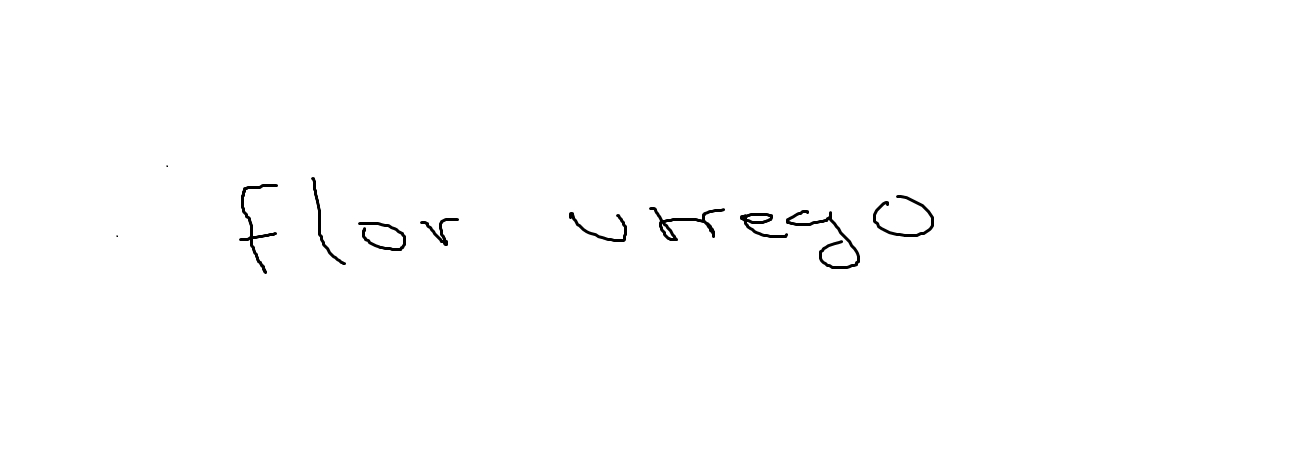 flor urrego